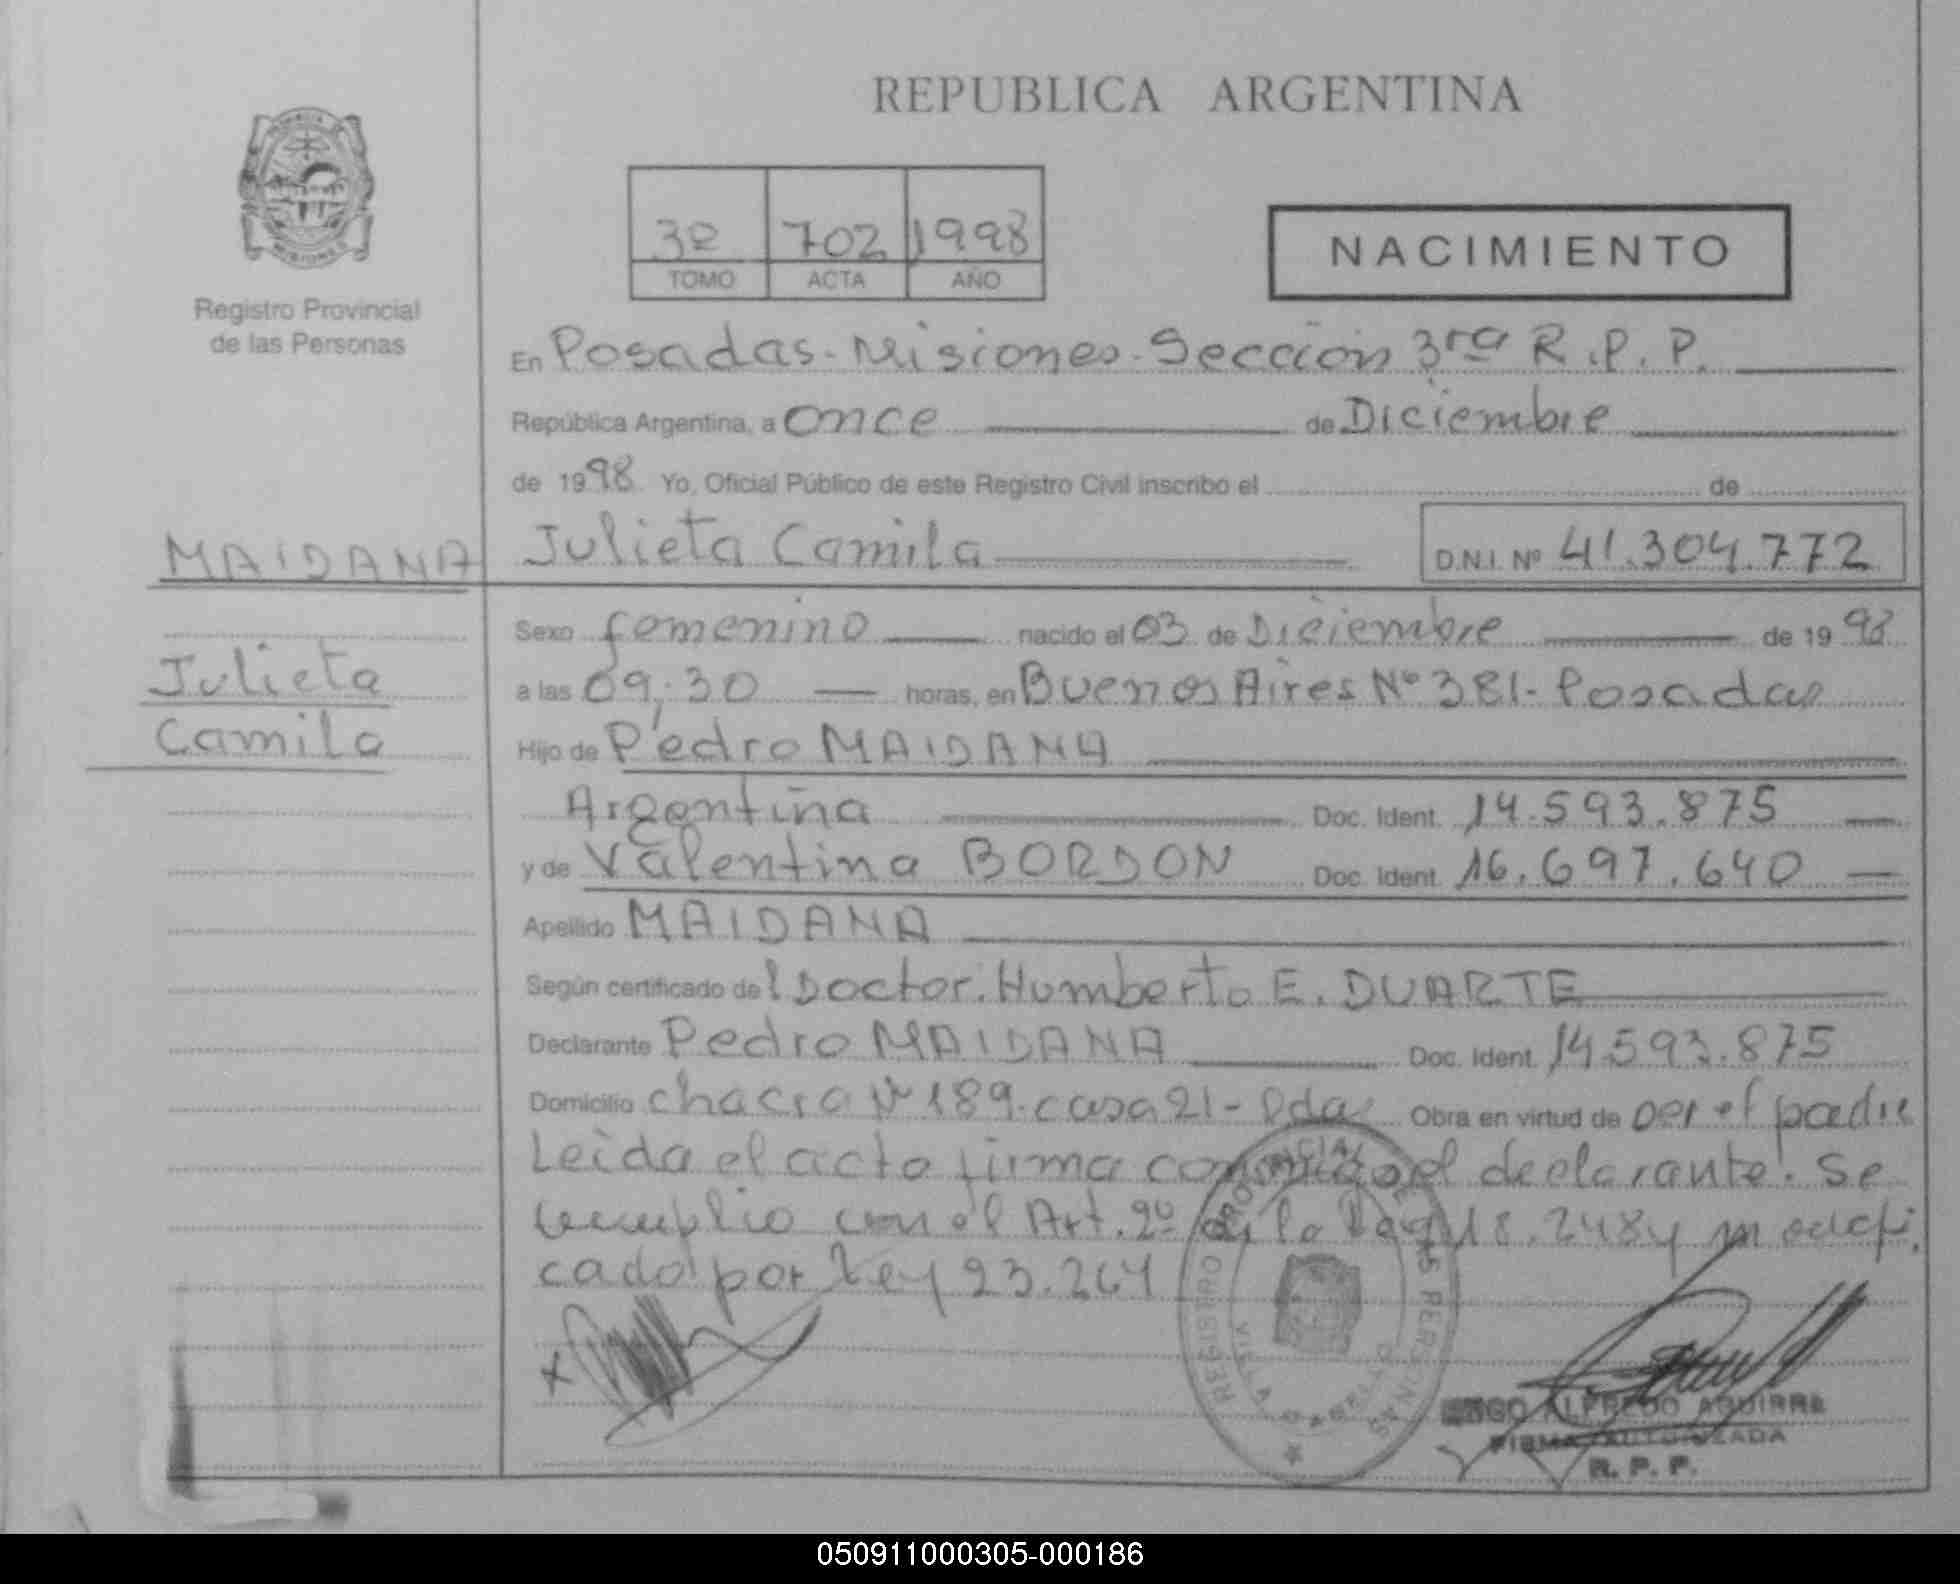 REPUBLICA ARGENTINA
PROVINCIA DE
MISIONES
Registro Provincial
de las Personas
3º 702 1998
TOMO ACTA AÑO
NACIMIENTO
En Posadas - Misiones - Sección 3ra R.P.P.
República Argentina, a once de Diciembre
de 1998 Yo, Oficial Público de este Registro Civil inscribo el de
Julieta Camila D.N.I. Nº 41.304.772
MAIDANA
Julieta
Camila
Sexo femenino nacido el 03 de Diciembre de 1998
a las 09:30 horas, en Buenos Aires Nº 381 - Posadas
Hijo de Pedro MAIDANA
Argentina Doc. Ident. 14.593.875
y de Valentina BORDON Doc. Ident. 16.697.640
Apellido MAIDANA
Según certificado del Doctor. Humberto E. DUARTE
Declarante Pedro MAIDANA Doc. Ident. 14.593.875
Domicilio chacra Nº 189. casa 21 - Pdas Obra en virtud de ser el padre
Leida el acta firma conmigo el declarante. Se
cumplio con el Art. 2º de la Ley 18.248 y modifi
cado por Ley 23.264
REGISTRO PROVINCIAL DE LAS PERSONAS
VILLA CABELLO
ALFREDO AGUIRRE
FIRMA AUTORIZADA
R. P. P.
050911000305-000186